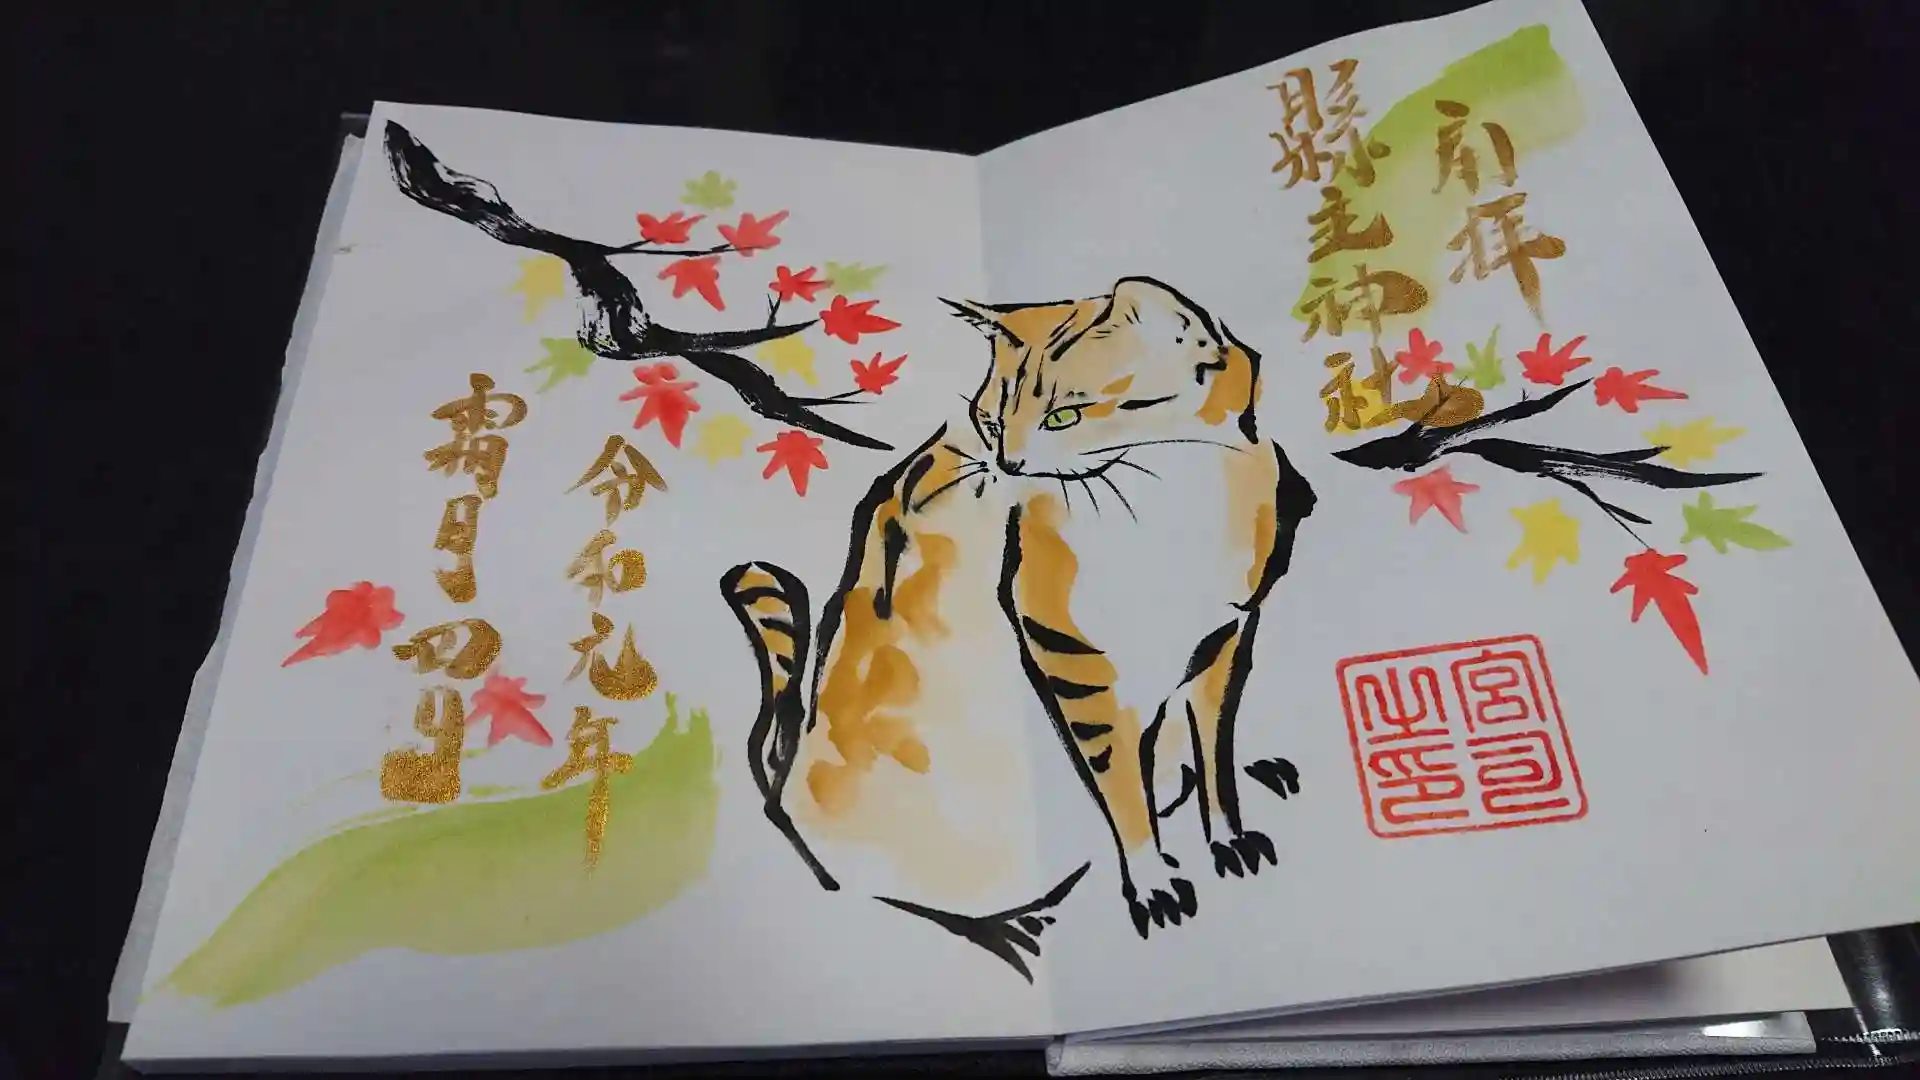 拝
縣主神社
令和元年
霜月四日
宮司
之印